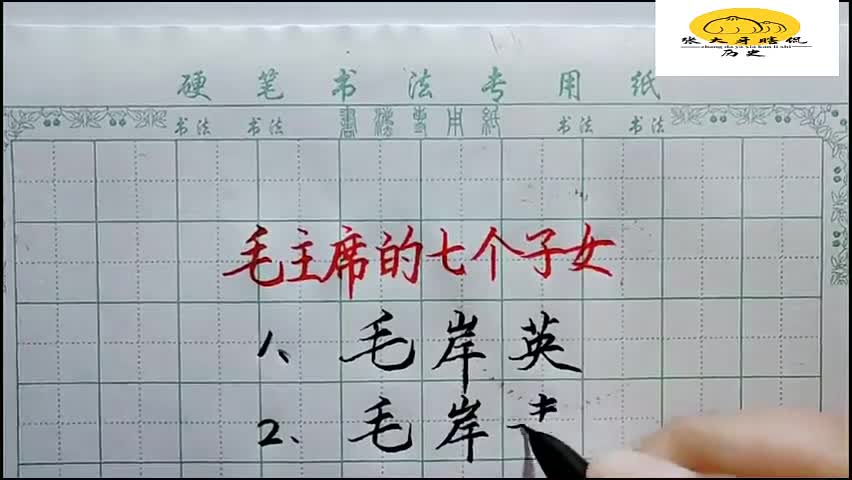 张大牙瞎侃
zhang da ya xia kan li shi
历史
硬笔书法专用纸
书法 书法 書法専用紙 书法 书法
毛主席的七个子女
1、毛岸英
2、毛岸